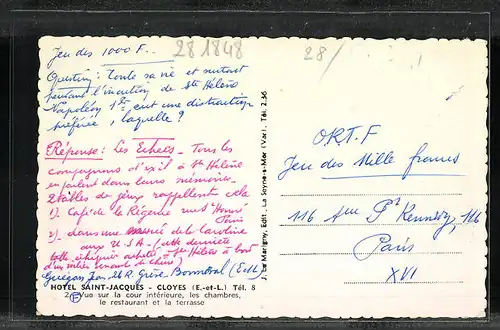 Jeu des 1000 F.
281848
28/
Question : Toute sa vie et surtout
pendant l'évacution de Ste Hélène
Napoléon 1er eut une distraction
préférée, laquelle ?
Réponse : Les Echecs - Tous les
compagnons d'exil à Ste Hélène
en parlent dans leurs mémoires
2 tables de jeux rappellent cela
1) Café de la Régence rue St Honoré
Paris
2) dans une musée de la Caroline
aux USA - (cette dernière
table échiquier achetée à Ste Hélène à bord
d'un navire venant de Chine)
Guégan Jean 26 R. Grève Bonneval (E et L)
HOTEL SAINT-JACQUES - CLOYES (E.-et-L.) Tél. 8
2 - Vue sur la cour intérieure, les chambres,
le restaurant et la terrasse
J. de Marigny, Edit., La Seyne-s-Mer (Var), Tél. 2.36
O.R.T.F
Jeu des Mille francs
116 Ave Pt Kennedy, 116
Paris
XVI